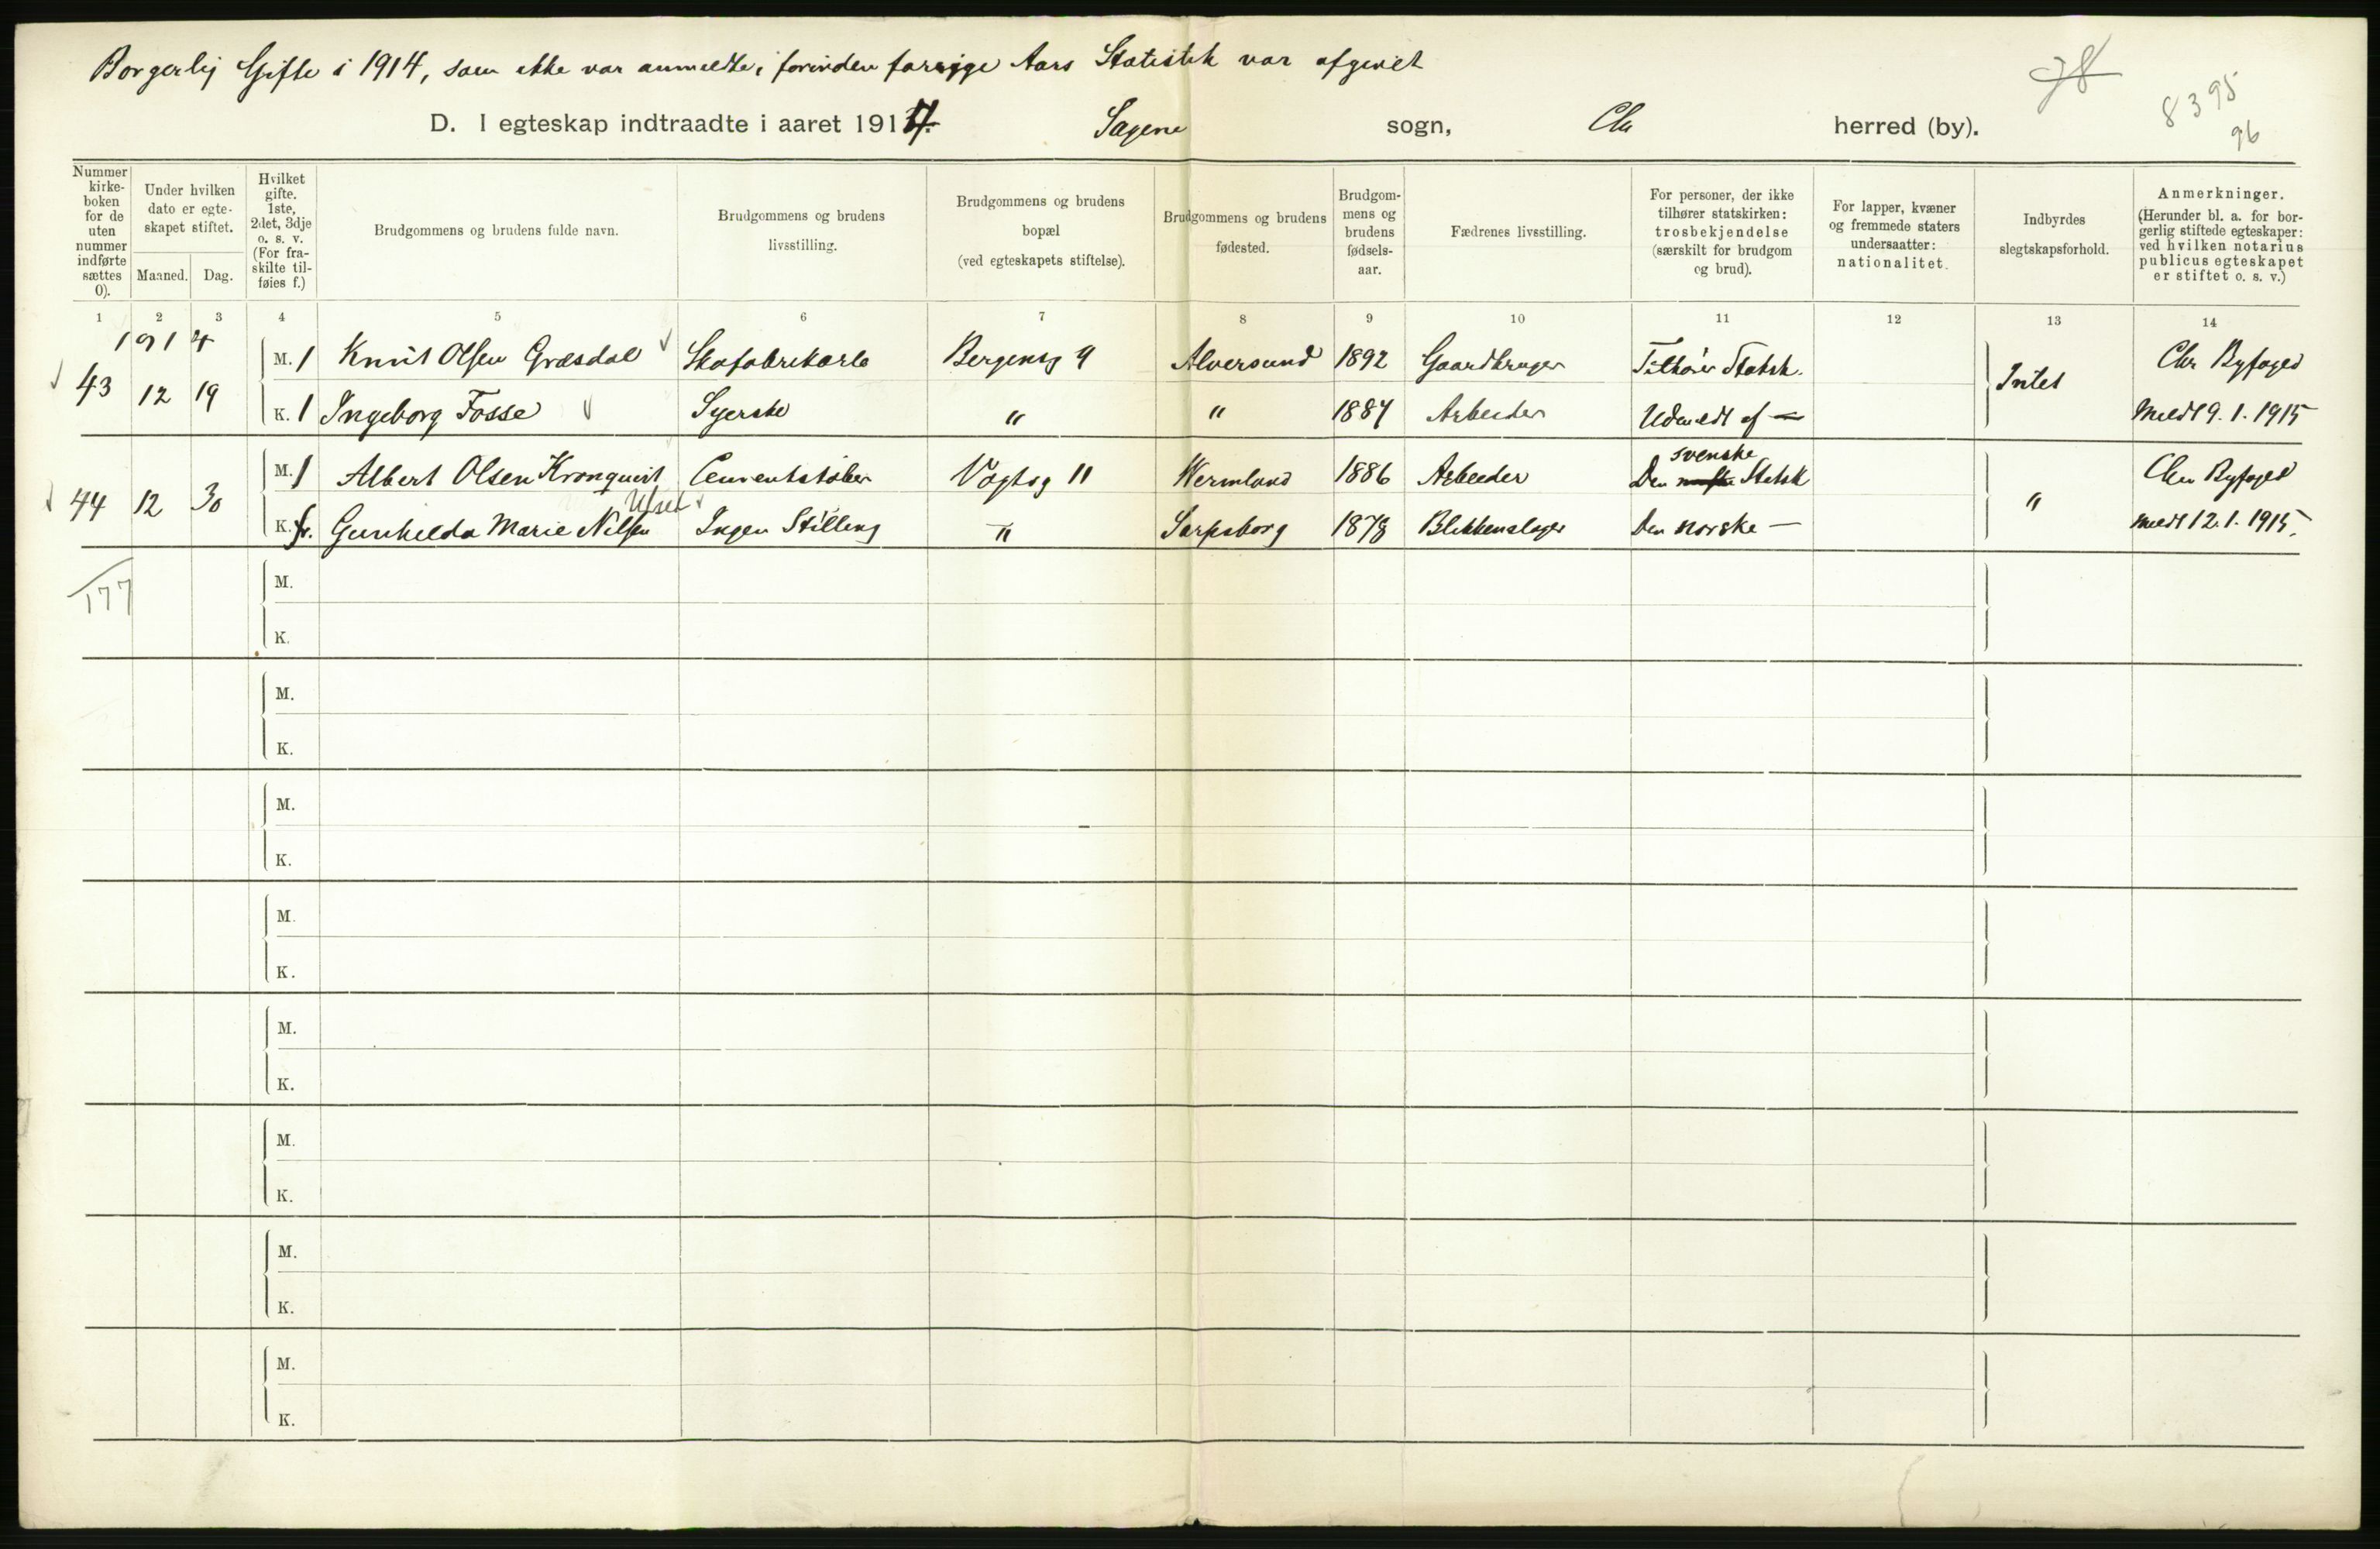 Borgerlig Gifte i 1914, som ikke var anmeldte, forinden forrige Aars Statistik var afgivet
78
8395
96
D. I egteskap indtraadte i aaret 1914. Sagene sogn, Chr herred (by).
Nummer kirkeboken for de uten nummer indførte sættes 0).
Under hvilken dato er egteskapet stiftet.
Maaned. Dag.
Hvilket gifte. 1ste, 2det, 3dje o. s. v. (For fraskilte tilføies f.)
Brudgommens og brudens fulde navn.
Brudgommens og brudens livsstilling.
Brudgommens og brudens bopæl (ved egteskapets stiftelse).
Brudgommens og brudens fødested.
Brudgommens og brudens fødselsaar.
Fædrenes livsstilling.
For personer, der ikke tilhører statskirken: trosbekjendelse (særskilt for brudgom og brud).
For lapper, kvæner og fremmede staters undersaatter: nationalitet.
Indbyrdes slegtskapsforhold.
Anmerkninger. (Herunder bl. a. for borgerlig stiftede egteskaper: ved hvilken notarius publicus egteskapet er stiftet o. s. v.)
1 2 3 4 5 6 7 8 9 10 11 12 13 14
1914
M. 1 Knut Olsen Græsdal Skofabrikarb Bergensg 9 Alversund 1892 Gaardbruger Tilhører Statsk. Chr Byfoged
43 12 19 Intet
K. 1 Ingeborg Fosse Syerske " " 1887 Arbeider Udmeldt af — Meldt 9. 1. 1915
svenske
M. 1 Albert Olsen Kronquist Cementstøber Vogtsg 11 Wermland 1886 Arbeider Den norske Statsk Chr Byfoged
44 12 30 "
Ulset
K. fr. Gunhilda Marie Nilsen Ingen Stilling " Sarpsborg 1878 Blikkenslager Den norske — meldt 12. 1. 1915.
177
M.
K.
M.
K.
M.
K.
M.
K.
M.
K.
M.
K.
M.
K.
M.
K.